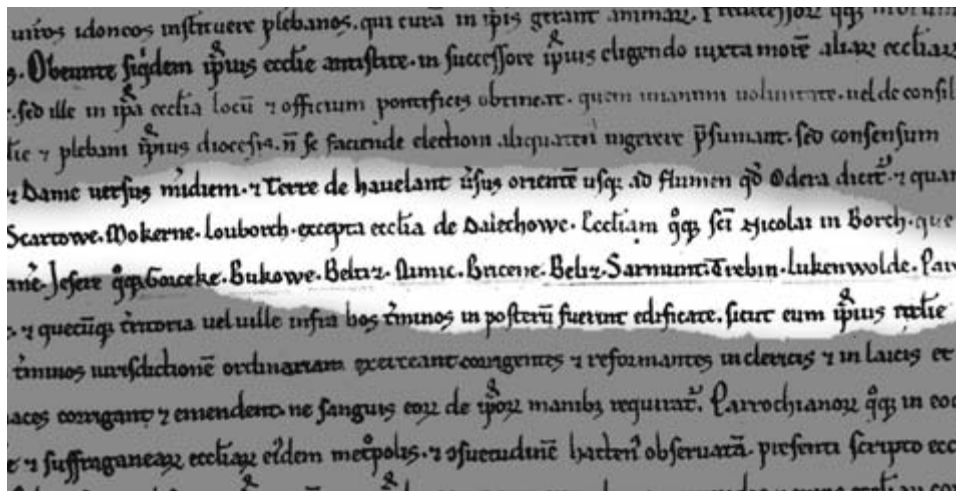 uiros idoneos instituere plebanos. qui curā in ip̄is gerant animaꝝ.
Obeunte siq̄dem ip̄ius eccl̄ie antistite. in successore ip̄ius eligendo iuxta morē aliaꝝ eccl̄iaꝝ
sed ille in ip̄a eccl̄ia locū ⁊ officium pontificis obtineat. quem unanimi uoluntate. uel de consil
⁊ plebani ip̄ius diocesis. n̄ se faciende electioni aliquaten' ingerere p̄sumant. sed consensum
⁊ Dame uersus m'idiem. ⁊ Terre de hauelant ūsus orientē usq; ad flumen qd̄ Odera dicit'. ⁊ quan
Scartowe. Mokerne. Louborch. excepta eccl̄ia de Dalechowe. Eccl̄iam q°q; sc̄i Nicolai in Borch. que
Jesere q°q; Goiceke. Bukowe. Beltiz. Numic. Bricene. Beliz. Sarmunt. Trebin. Lukenwolde.
⁊ quecūq; t'ritoria uel uille infra hos t'minos in posterū fuerint edificate. sicut eum ip̄ius
t'minos iurisdictionē ordinariam exerceant corrigentes ⁊ reformantes in clericis ⁊ in laicis et
corrigant ⁊ emendent. ne sanguis eoꝝ de ip̄oꝝ manib; requirat'. Parrochianoꝝ q°q; in eod
⁊ suffraganeaꝝ eccl̄iaꝝ ei'dem met°polis. ⁊ ꝯsuetudinē hacten' obseruatā. presenti scripto